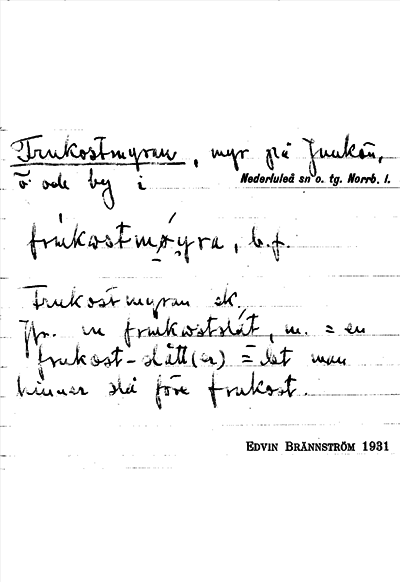 Frukostmyran, myr på Junkön,
ö och by i Nederluleå sn o. tg. Norrb. l.
b.f.
Frukostmyran ek.
Jfr. en m. = en
frukost-slått(er) = det man
hinner slå före frukost.
EDVIN BRÄNNSTRÖM 1931